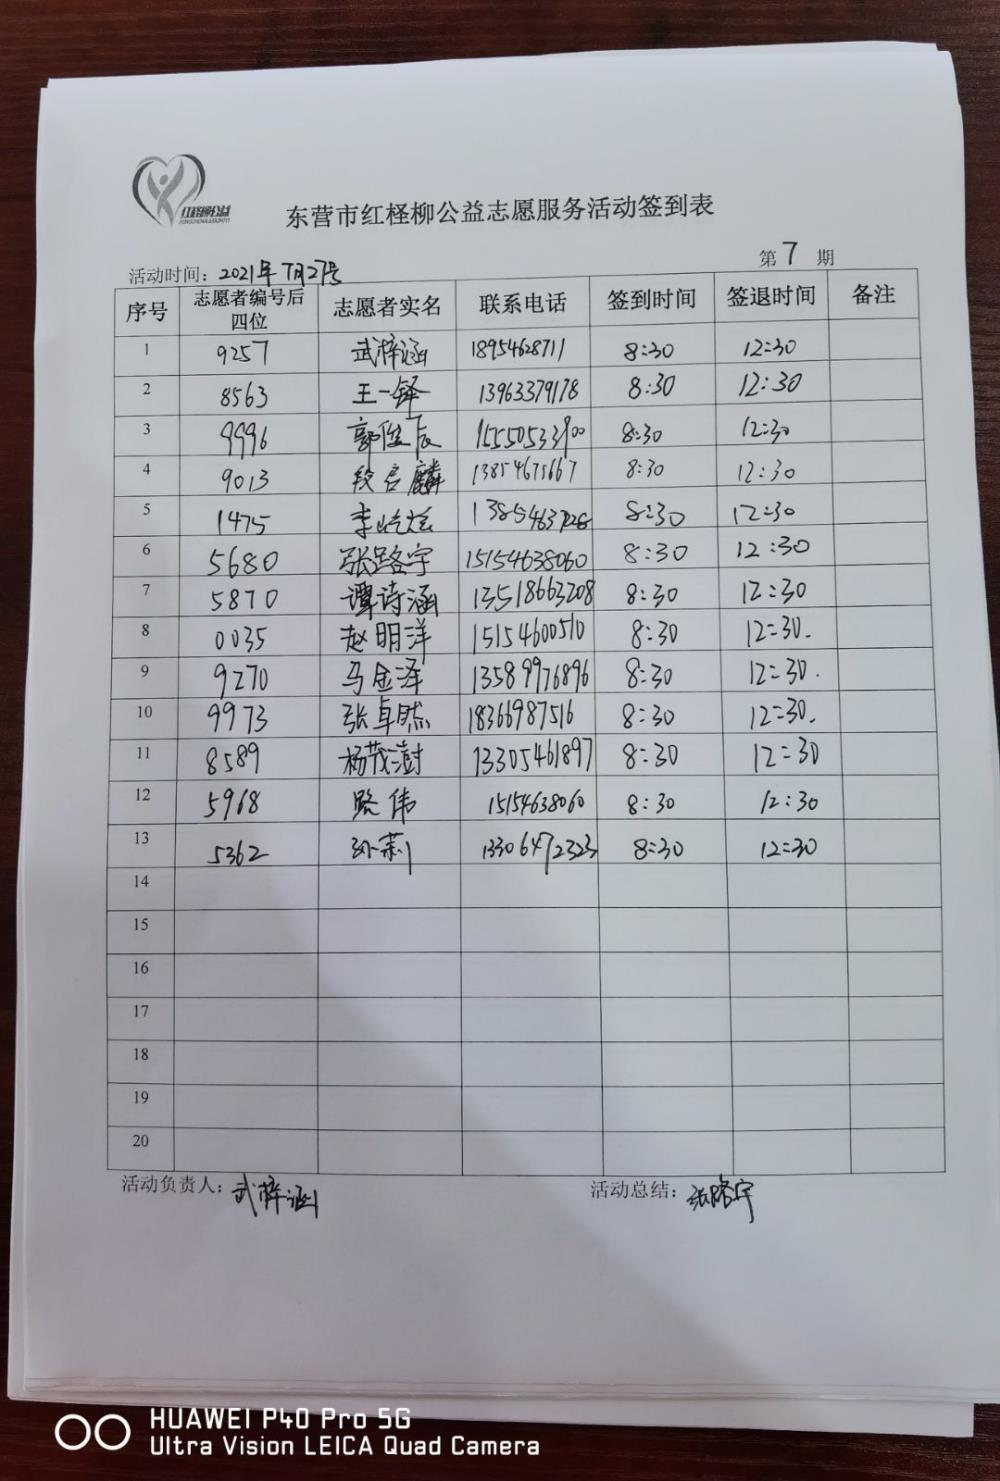 红柽柳公益
东营市红柽柳公益志愿服务活动签到表
活动时间：2021年7月27号 第7期
序号 志愿者编号后四位 志愿者实名 联系电话 签到时间 签退时间 备注
1 9257 武梓涵 18954628711 8:30 12:30
2 8563 王一铎 13963379178 8:30 12:30
3 9996 郭俊辰 15550533900 8:30 12:30
4 9013 段启麟 13854675667 8:30 12:30
5 1475 李 8:30 12:30
6 5680 张路宇 15154638060 8:30 12:30
7 5870 谭诗涵 13518663208 8:30 12:30
8 0035 赵明洋 15154600510 8:30 12:30.
9 9270 马金泽 13589976896 8:30 12:30.
10 9973 张卓然 18366987516 8:30 12:30.
11 8589 杨茂澍 13305461897 8:30 12:30
12 5968 路伟 15154638060 8:30 12:30
13 5362 孙莉 13306472323 8:30 12:30
14
15
16
17
18
19
20
活动负责人：武梓涵 活动总结：张路宇
HUAWEI P40 Pro 5G
Ultra Vision LEICA Quad Camera